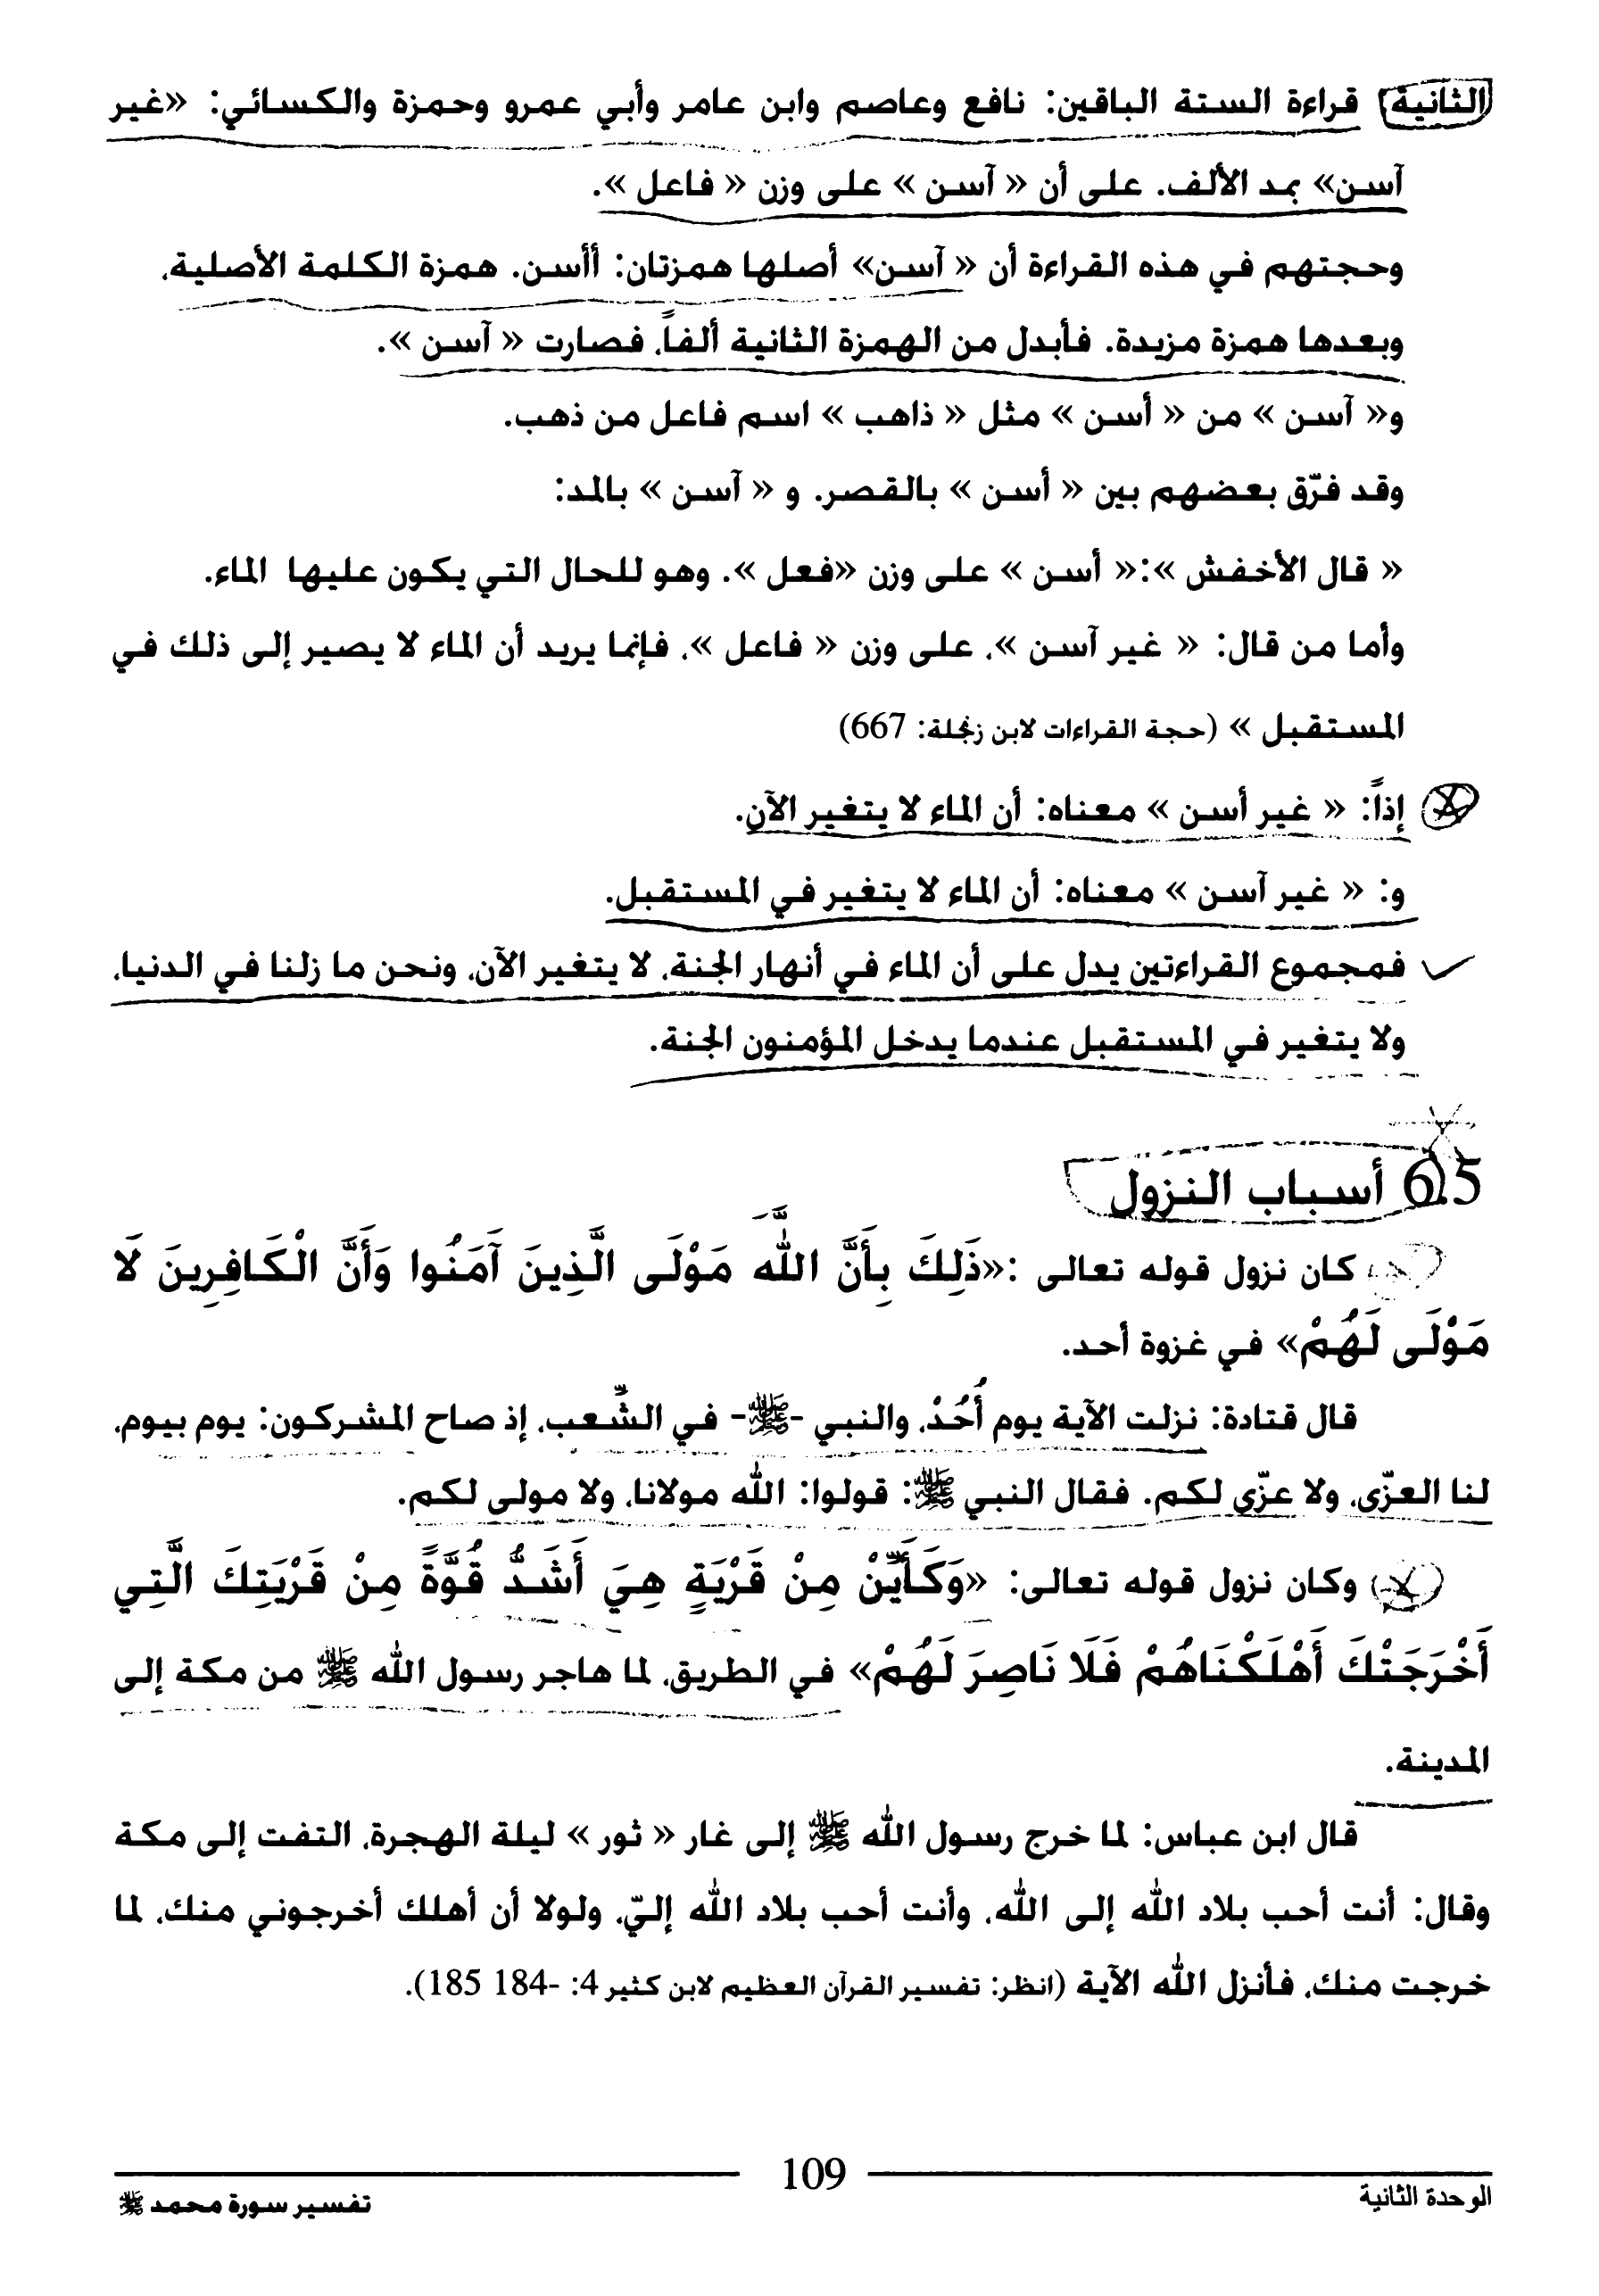 (الثانية) قراءة الستة الباقين: نافع وعاصم وابن عامر وأبي عمرو وحمزة والكسائي: «غير
آسن» بمد الألف. على أن « آسن » على وزن « فاعل ».
وحجتهم في هذه القراءة أن « آسن» أصلها همزتان: أأسن. همزة الكلمة الأصلية،
وبعدها همزة مزيدة. فأبدل من الهمزة الثانية ألفاً، فصارت « آسن ».
و« آسن » من « أسن » مثل « ذاهب » اسم فاعل من ذهب.
وقد فرّق بعضهم بين « أسن » بالقصر. و « آسن » بالمد:
« قال الأخفش »:« أسن » على وزن «فعل ». وهو للحال التي يكون عليها الماء.
وأما من قال: « غير آسن »، على وزن « فاعل »، فإنما يريد أن الماء لا يصير إلى ذلك في
المستقبل » (حجة القراءات لابن زنجلة: 667)
إذاً: « غير أسن » معناه: أن الماء لا يتغير الآن.
و: « غير آسن » معناه: أن الماء لا يتغير في المستقبل.
فمجموع القراءتين يدل على أن الماء في أنهار الجنة، لا يتغير الآن، ونحن ما زلنا في الدنيا،
ولا يتغير في المستقبل عندما يدخل المؤمنون الجنة.
6.5 أسباب النزول
كان نزول قوله تعالى :«ذَلِكَ بِأَنَّ اللَّهَ مَوْلَى الَّذِينَ آَمَنُوا وَأَنَّ الْكَافِرِينَ لَا
مَوْلَى لَهُمْ» في غزوة أحد.
قال قتادة: نزلت الآية يوم أُحُدْ، والنبي -ﷺ- في الشِّعب، إذ صاح المشركون: يوم بيوم،
لنا العزّى، ولا عزّي لكم. فقال النبي ﷺ: قولوا: الله مولانا، ولا مولى لكم.
وكان نزول قوله تعالى: «وَكَأَيِّنْ مِنْ قَرْيَةٍ هِيَ أَشَدُّ قُوَّةً مِنْ قَرْيَتِكَ الَّتِي
أَخْرَجَتْكَ أَهْلَكْنَاهُمْ فَلَا نَاصِرَ لَهُمْ» في الطريق، لما هاجر رسول الله ﷺ من مكة إلى
المدينة.
قال ابن عباس: لما خرج رسول الله ﷺ إلى غار « ثور » ليلة الهجرة، التفت إلى مكة
وقال: أنت أحب بلاد الله إلى الله، وأنت أحب بلاد الله إليّ، ولولا أن أهلك أخرجوني منك، لما
خرجت منك، فأنزل الله الآية (انظر: تفسير القرآن العظيم لابن كثير 4: -184 185).
109
الوحدة الثانية
تفسير سورة محمد ﷺ